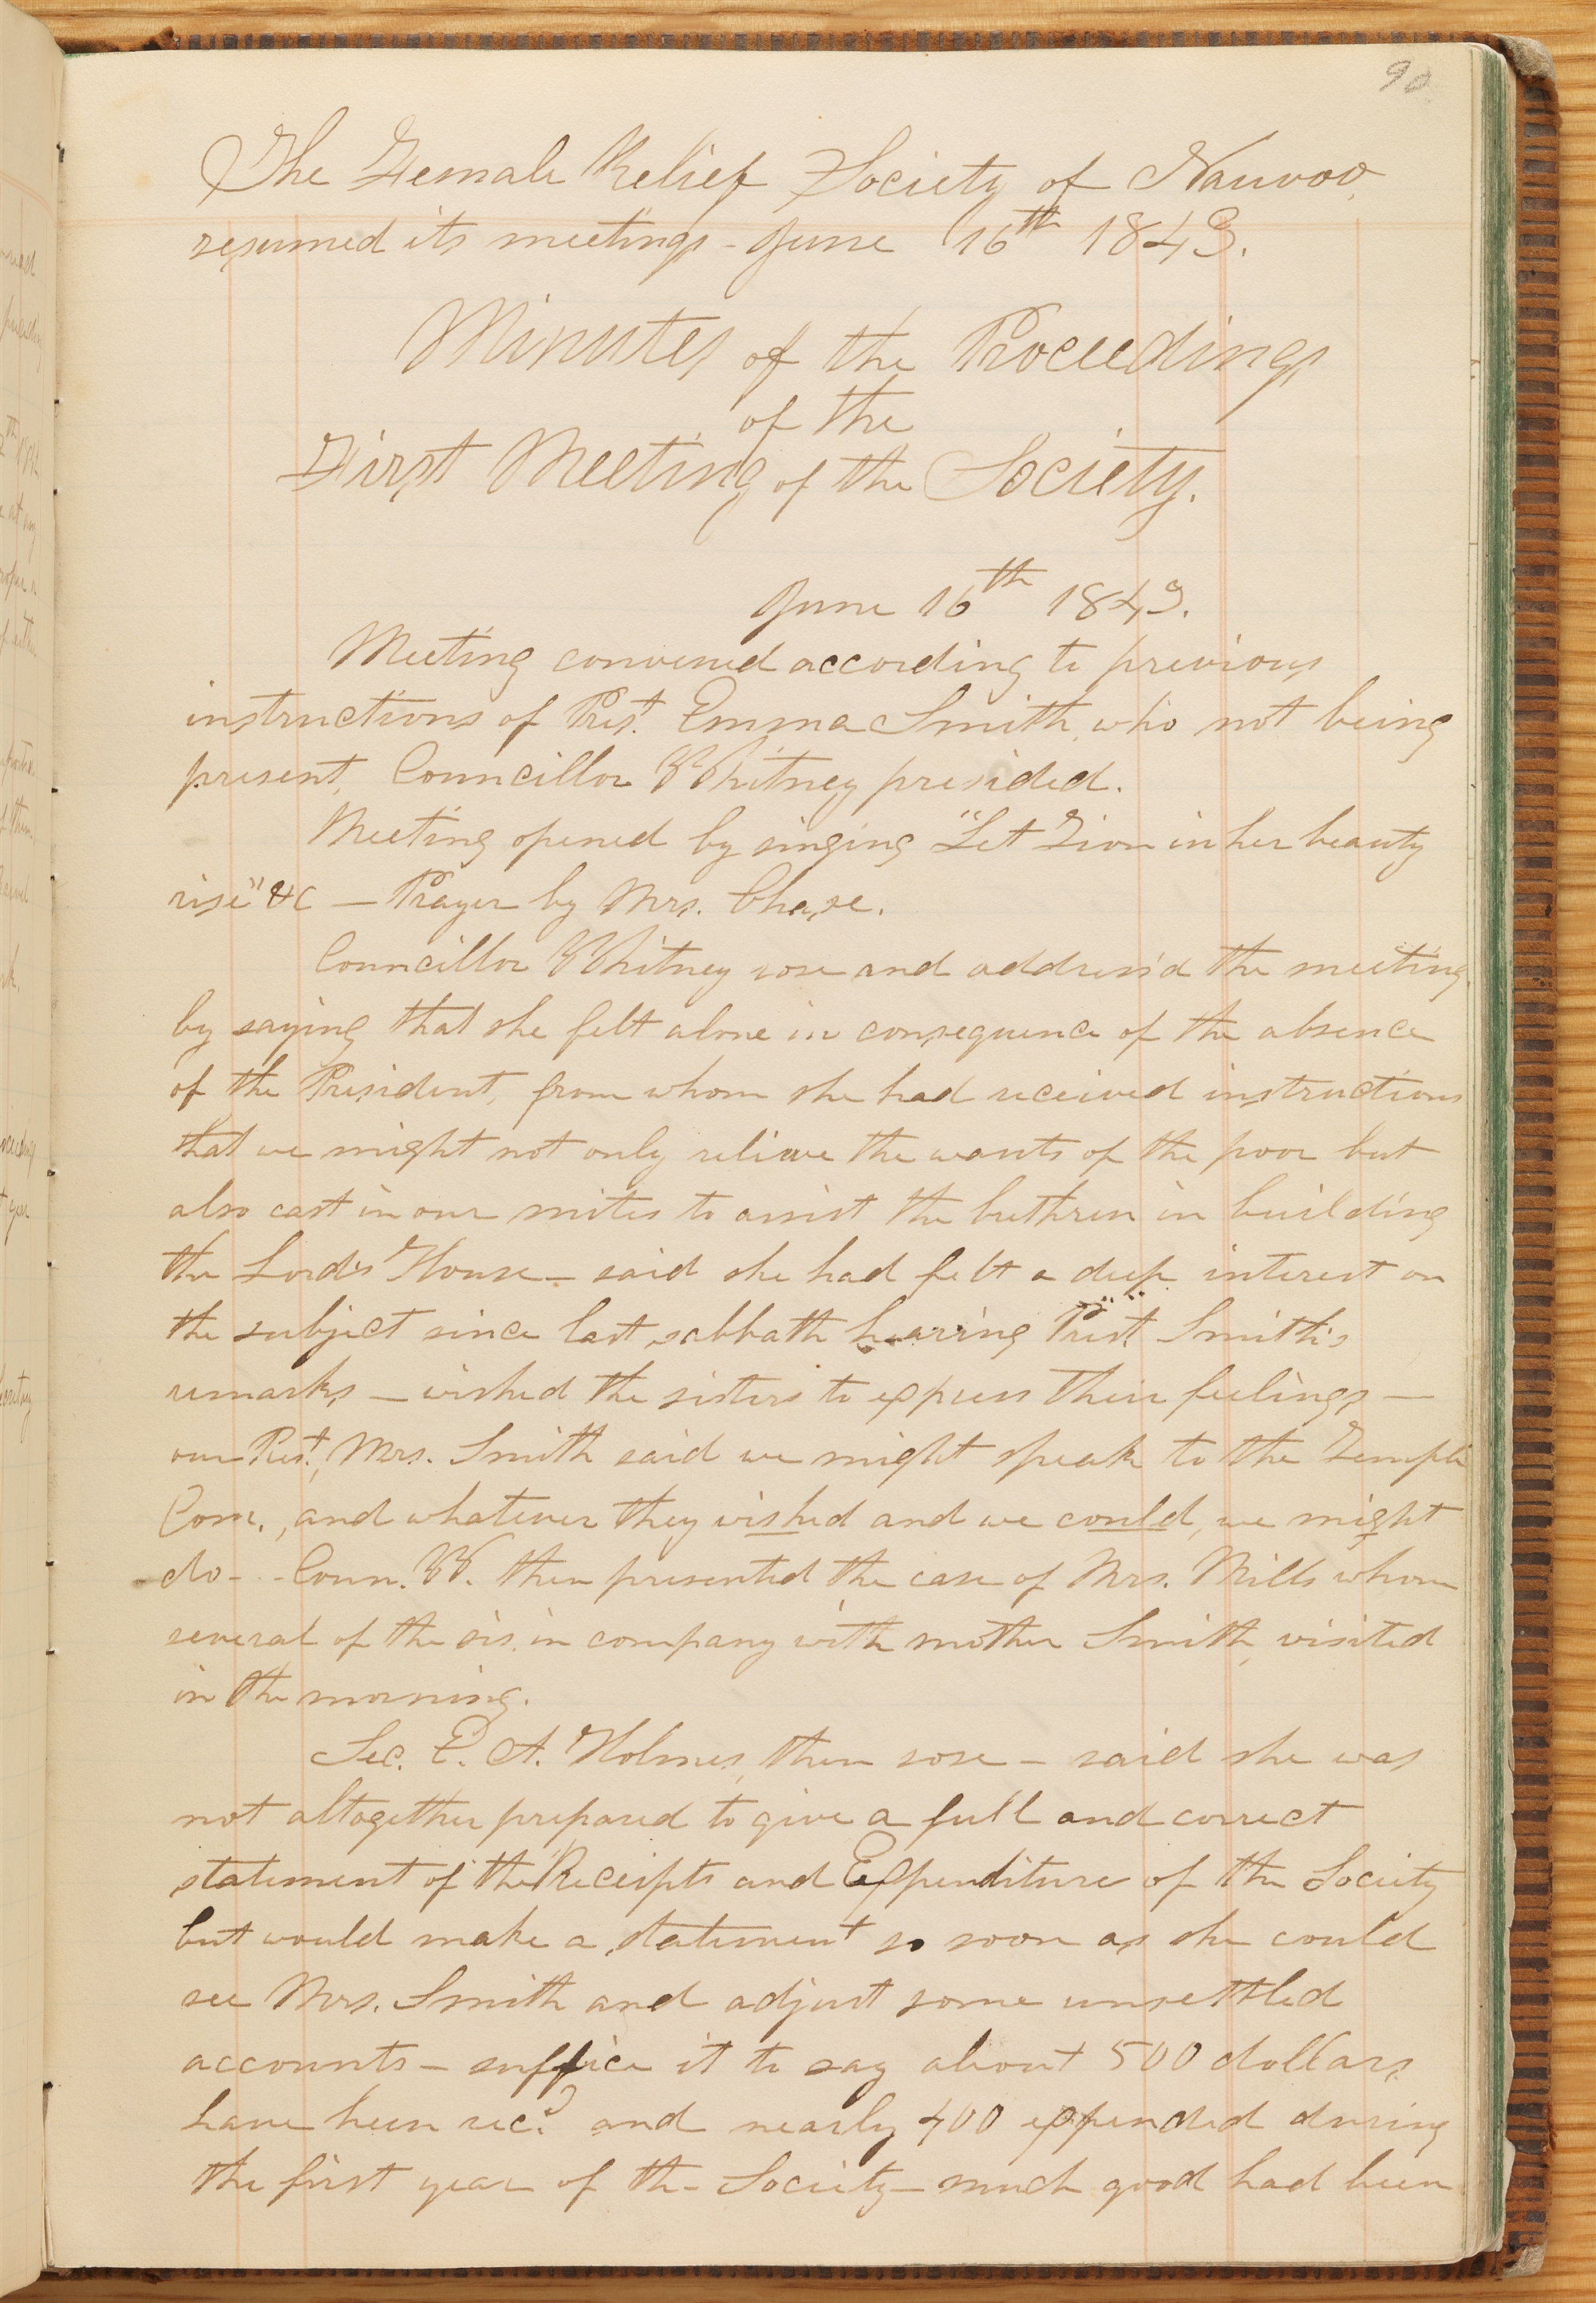 90
The Female Relief Society of Nauvoo,
resumed its meetings - June 16th 1843.
Minutes of the Proceedings
of the
First Meeting of the Society.
June 16th 1843.
Meeting convened according to previous
instructions of Prest. Emma Smith, who not being
present, Councillor Whitney presided.
Meeting opened by singing "Let Zion in her beauty
rise" &c — Prayer by Mrs. Chase.
Councillor Whitney rose and address'd the meeting
by saying that she felt alone in consequence of the absence
of the President, from whom she had received instructions
that we might not only relieve the wants of the poor but
also cast in our mites to assist the brethren in building
the Lord's House — said she had felt a deep interest on
the subject since last sabbath hearing Prest. Smith's
remarks — wished the sisters to express their feelings —
our Prest., Mrs. Smith said we might speak to the Temple
Com., and whatever they wished and we could, we might
do - - Coun. W. then presented the case of Mrs. Mills whom
several of the sis. in company with mother Smith, visited
in the morning.
Sec. E. A. Holmes, then rose — said she was
not altogether prepared to give a full and correct
statement of the Receipts and Expenditure of the Society
but would make a statement so soon as she could
see Mrs. Smith and adjust some unsettled
accounts — suffice it to say about 500 dollars
have been rec.d and nearly 400 expended during
the first year of the Society — much good had been